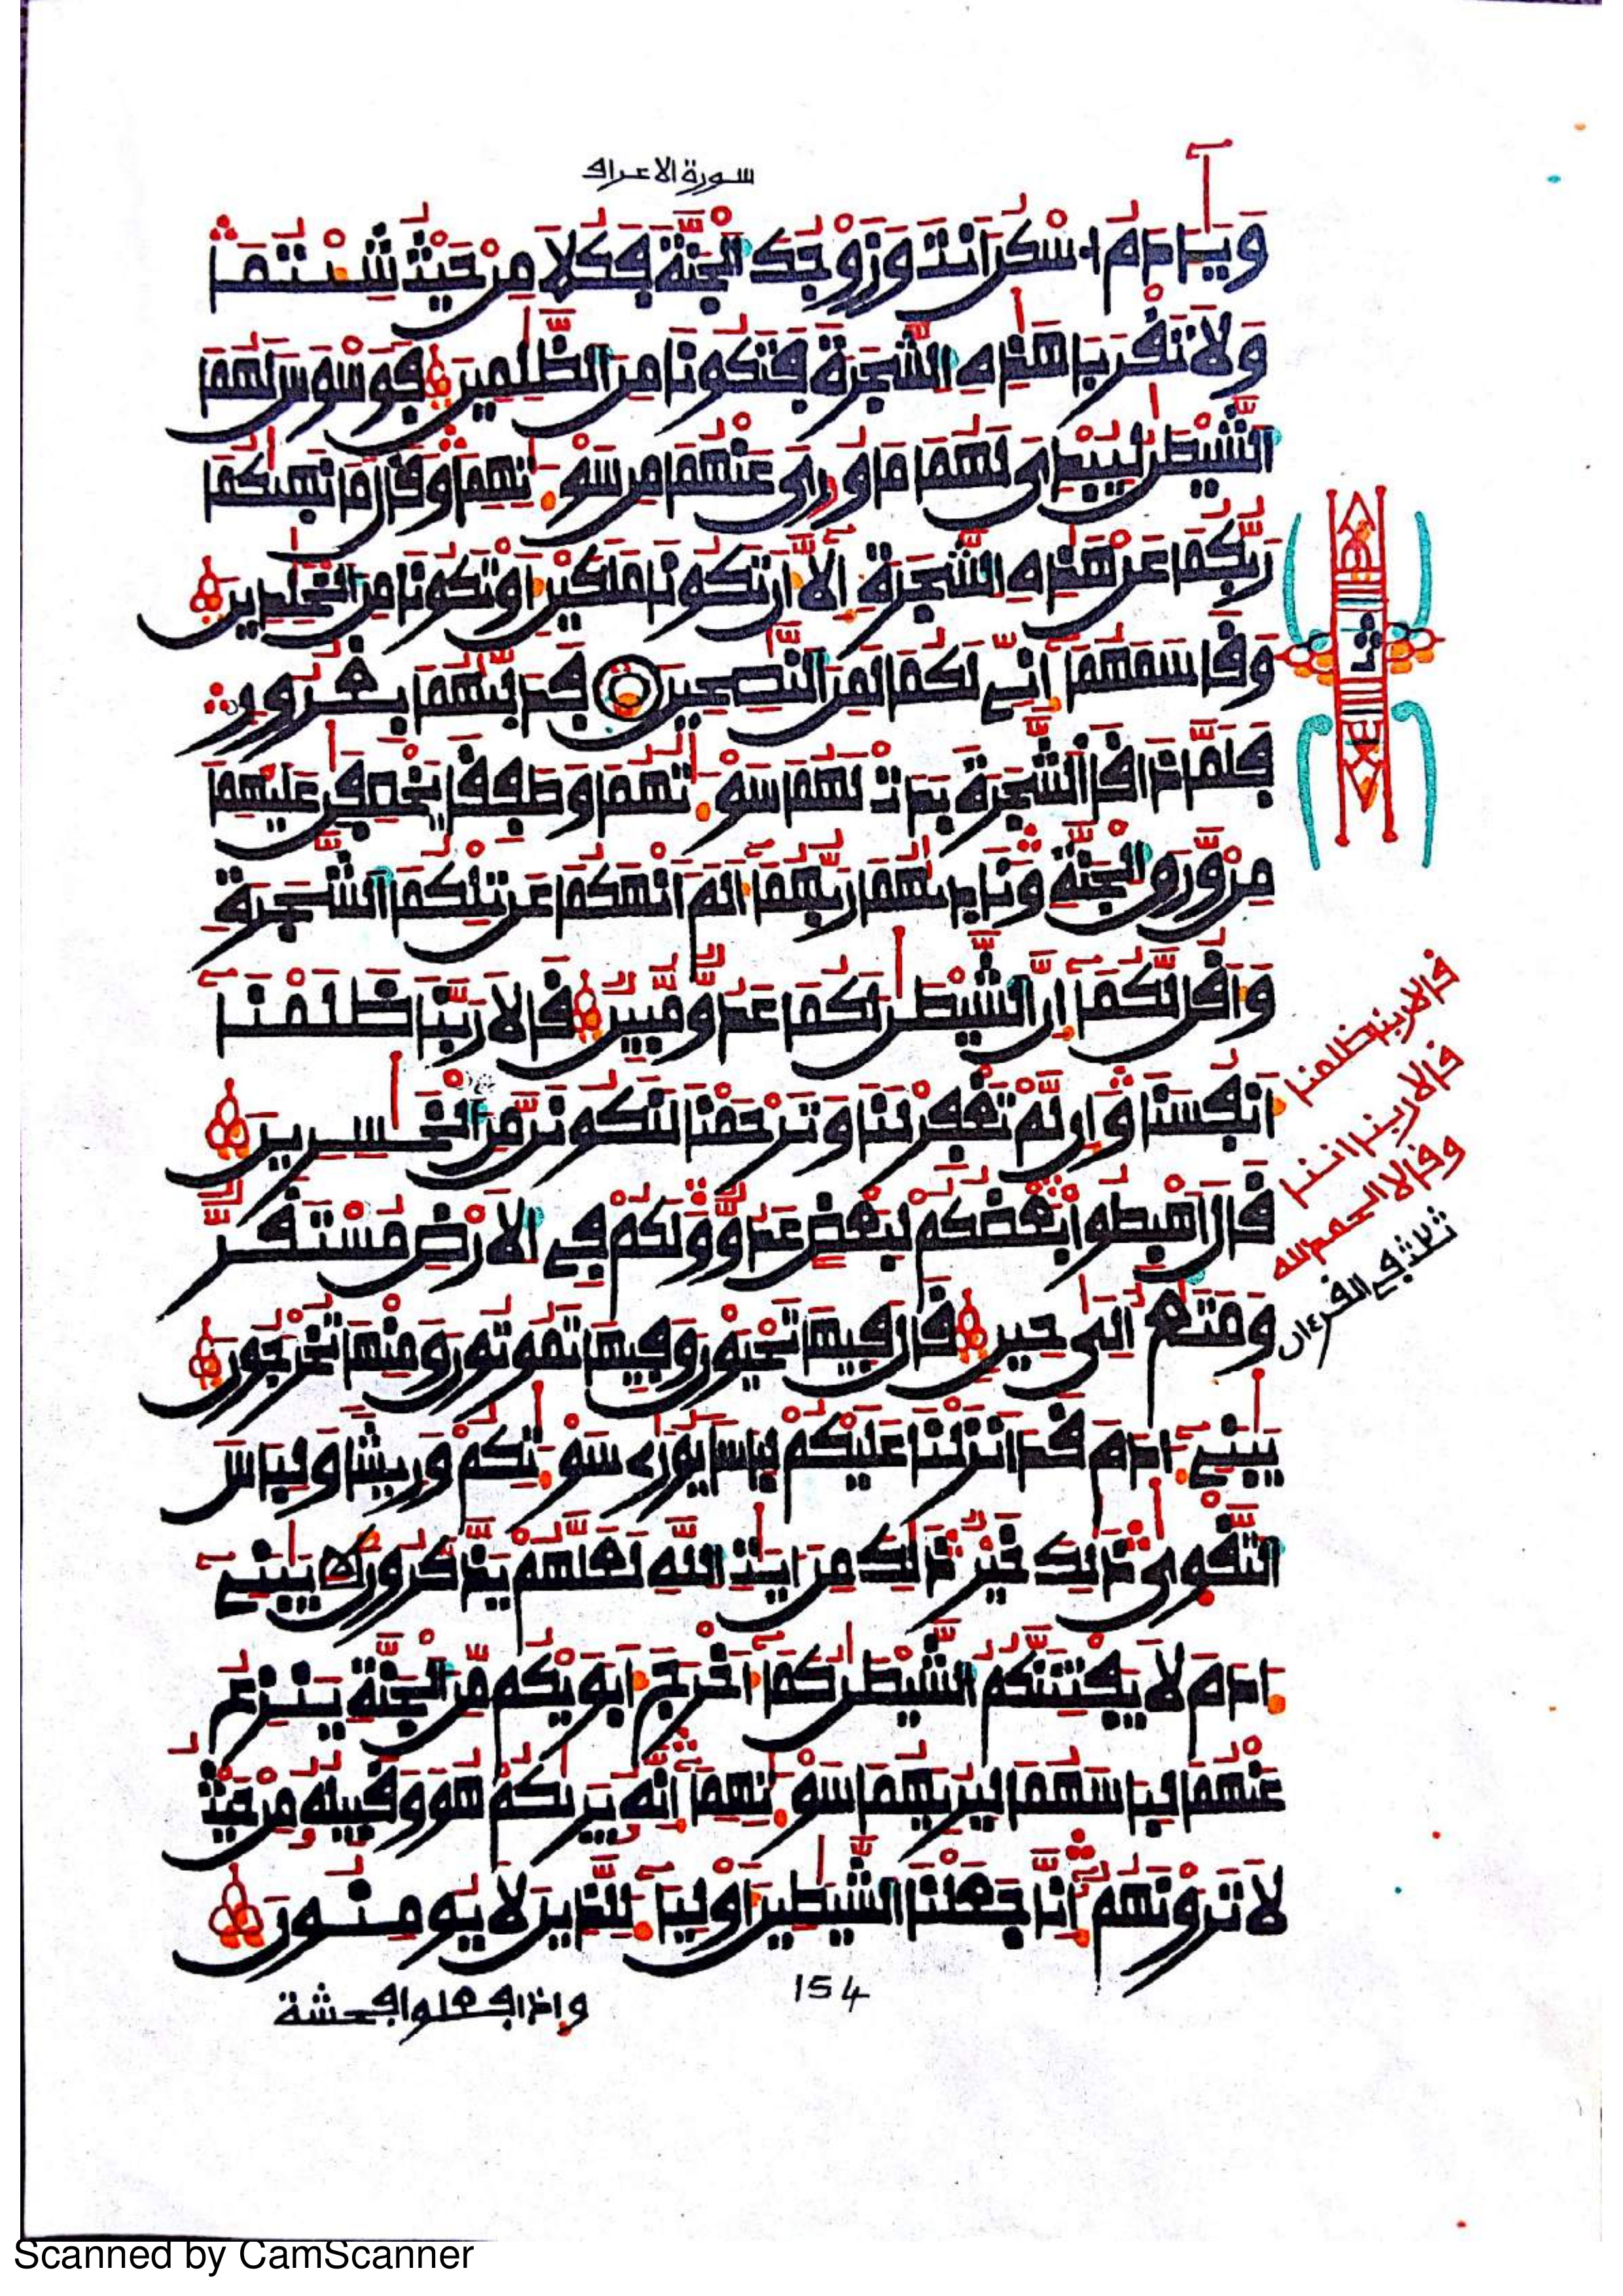 سورة الاعراف
وَيَـٰٓـَٔادَمُ اُسْكُنَ اَنتَ وَزَوْجُكَ اَلْجَنَّةَ فَكُلَا مِنْ حَيْثُ شِئْتُمَا
وَلَا تَقْرَبَا هَـٰذِهِ اِلشَّجَرَةَ فَتَكُونَا مِنَ اَلظَّـٰلِمِينَ فَوَسْوَسَ لَهُمَا
اَلشَّيْطَـٰنُ لِيُبْدِىَ لَهُمَا مَا وُۥرِىَ عَنْهُمَا مِن سَوْءَٰتِهِمَا وَقَالَ مَا نَهَىٰكُمَا
رَبُّكُمَا عَنْ هَـٰذِهِ اِلشَّجَرَةِ إِلَّآ أَن تَكُونَا مَلَكَيْنِ أَوْ تَكُونَا مِنَ اَلْخَـٰلِدِينَ
وَقَاسَمَهُمَآ إِنِّے لَكُمَا لَمِنَ اَلنَّـٰصِحِينَ فَدَلَّىٰهُمَا بِغُرُورٖ
فَلَمَّا ذَاقَا اَلشَّجَرَةَ بَدَتْ لَهُمَا سَوْءَٰتُهُمَا وَطَفِقَا يَخْصِفَـٰنِ عَلَيْهِمَا
مِنْ وَّرَقِ اِلْجَنَّةِ وَنَادَىٰهُمَا رَبُّهُمَآ أَلَمَ اَنْهَكُمَا عَن تِلْكُمَا اَلشَّجَرَةِ
وَأَقُل لَّكُمَآ إِنَّ اَلشَّيْطَـٰنَ لَكُمَا عَدُوٌّ مُّبِينٌ قَالَا رَبَّنَا ظَلَمْنَآ
أَنفُسَنَا وَإِن لَّمْ تَغْفِرْ لَنَا وَتَرْحَمْنَا لَنَكُونَنَّ مِنَ اَلْخَـٰسِرِينَ
قَالَ اَهْبِطُوا۟ بَعْضُكُمْ لِبَعْضٍ عَدُوٌّ وَلَكُمْ فِے اِلَارْضِ مُسْتَقَرٌّ
وَمَتَـٰعٌ إِلَىٰ حِينٍ قَالَ فِيهَا تَحْيَوْنَ وَفِيهَا تَمُوتُونَ وَمِنْهَا تُخْرَجُونَ
يَـٰبَنِےٓ ءَادَمَ قَدَ اَنزَلْنَا عَلَيْكُمْ لِبَاسًا يُوَٰرِى سَوْءَٰتِكُمْ وَرِيشًا وَلِبَاسَ
اَلتَّقْوَىٰ ذَٰلِكَ خَيْرٌ ذَٰلِكَ مِنَ اٰيَـٰتِ اِللَّهِ لَعَلَّهُمْ يَذَّكَّرُونَ يَـٰبَنِےٓ
ءَادَمَ لَا يَفْتِنَنَّكُمُ اُلشَّيْطَـٰنُ كَمَآ أَخْرَجَ أَبَوَيْكُم مِّنَ اَلْجَنَّةِ يَنزِعُ
عَنْهُمَا لِبَاسَهُمَا لِيُرِيَهُمَا سَوْءَٰتِهِمَآ إِنَّهُۥ يَرَىٰكُمْ هُوَ وَقَبِيلُهُۥ مِنْ حَيْثُ
لَا تَرَوْنَهُمُۥٓ إِنَّا جَعَلْنَا اَلشَّيَـٰطِينَ أَوْلِيَآءَ لِلَّذِينَ لَا يُومِنُونَ
154
وإذا فعلوا فحشة
ثمن
قالا ربنا ظلمنا
قالا ربنا اننا
وقالا الحمد لله
ثلاث في القرءان
Scanned by CamScanner